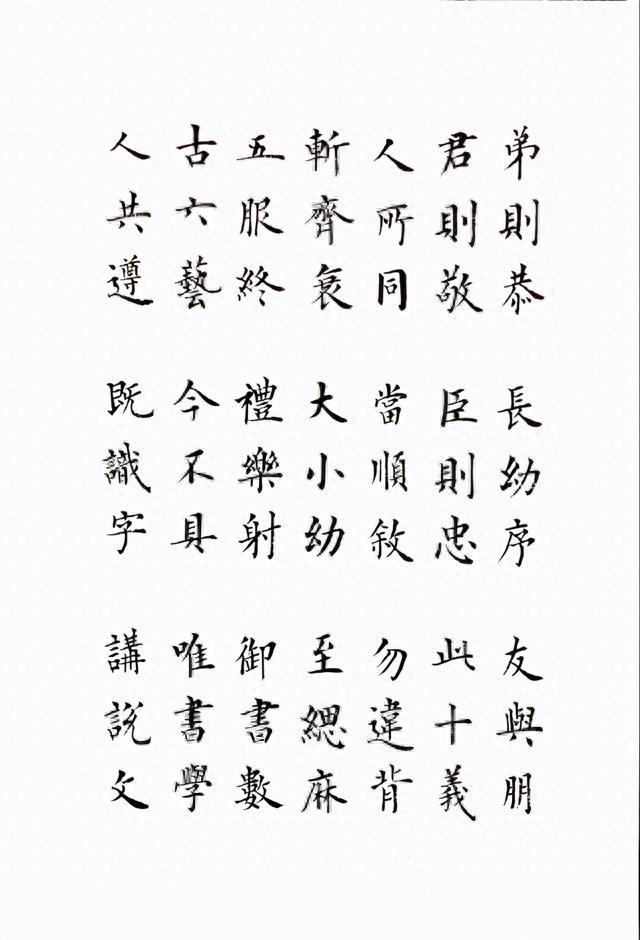 弟則恭 長幼序 友與朋
君則敬 臣則忠 此十義
人所同 當順敘 勿違背
斬齊衰 大小幼 至緦麻
五服終 禮樂射 御書數
古六藝 今不具 唯書學
人共遵 既識字 講說文